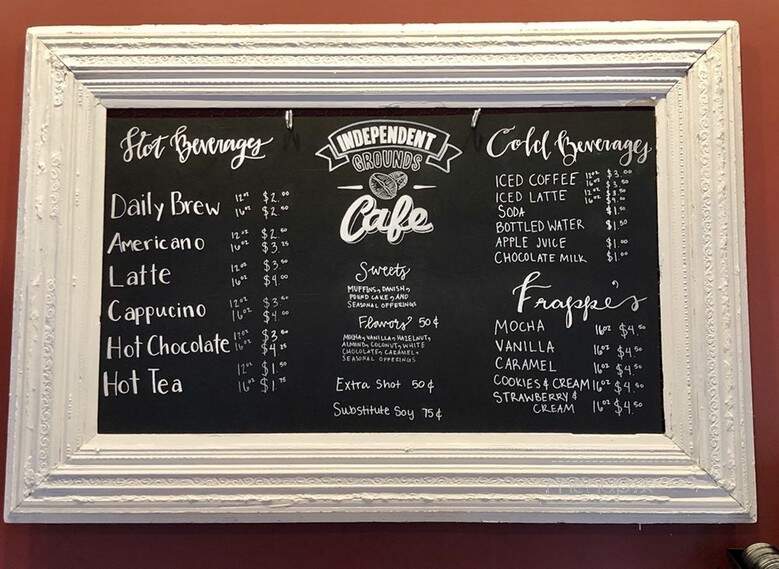 Hot Beverages
Daily Brew 12oz $2.00
16oz $2.50
Americano 12oz
16oz $3.25
Latte 12oz
16oz $4.00
Cappucino 12oz
16oz $4.00
Hot Chocolate 12oz
16oz $4.25
Hot Tea 12oz $1.50
16oz $1.75
INDEPENDENT
GROUNDS
Cafe
Sweets
MUFFINS, DANISH,
POUND CAKE, AND
SEASONAL OFFERINGS
Flavors 50¢
MOCHA, VANILLA, HAZELNUT,
ALMOND, COCONUT, WHITE
CHOCOLATE, CARAMEL,
SEASONAL OFFERINGS
Extra Shot 50¢
Substitute Soy 75¢
Cold Beverages
ICED COFFEE 12oz $3.00
16oz $3.50
ICED LATTE 12oz
16oz
SODA
BOTTLED WATER $1.50
APPLE JUICE $1.00
CHOCOLATE MILK $1.00
Frappe's
MOCHA 16oz $4.50
VANILLA 16oz $4.50
CARAMEL 16oz $4.50
COOKIES & CREAM 16oz $4.50
STRAWBERRY &
CREAM 16oz $4.50